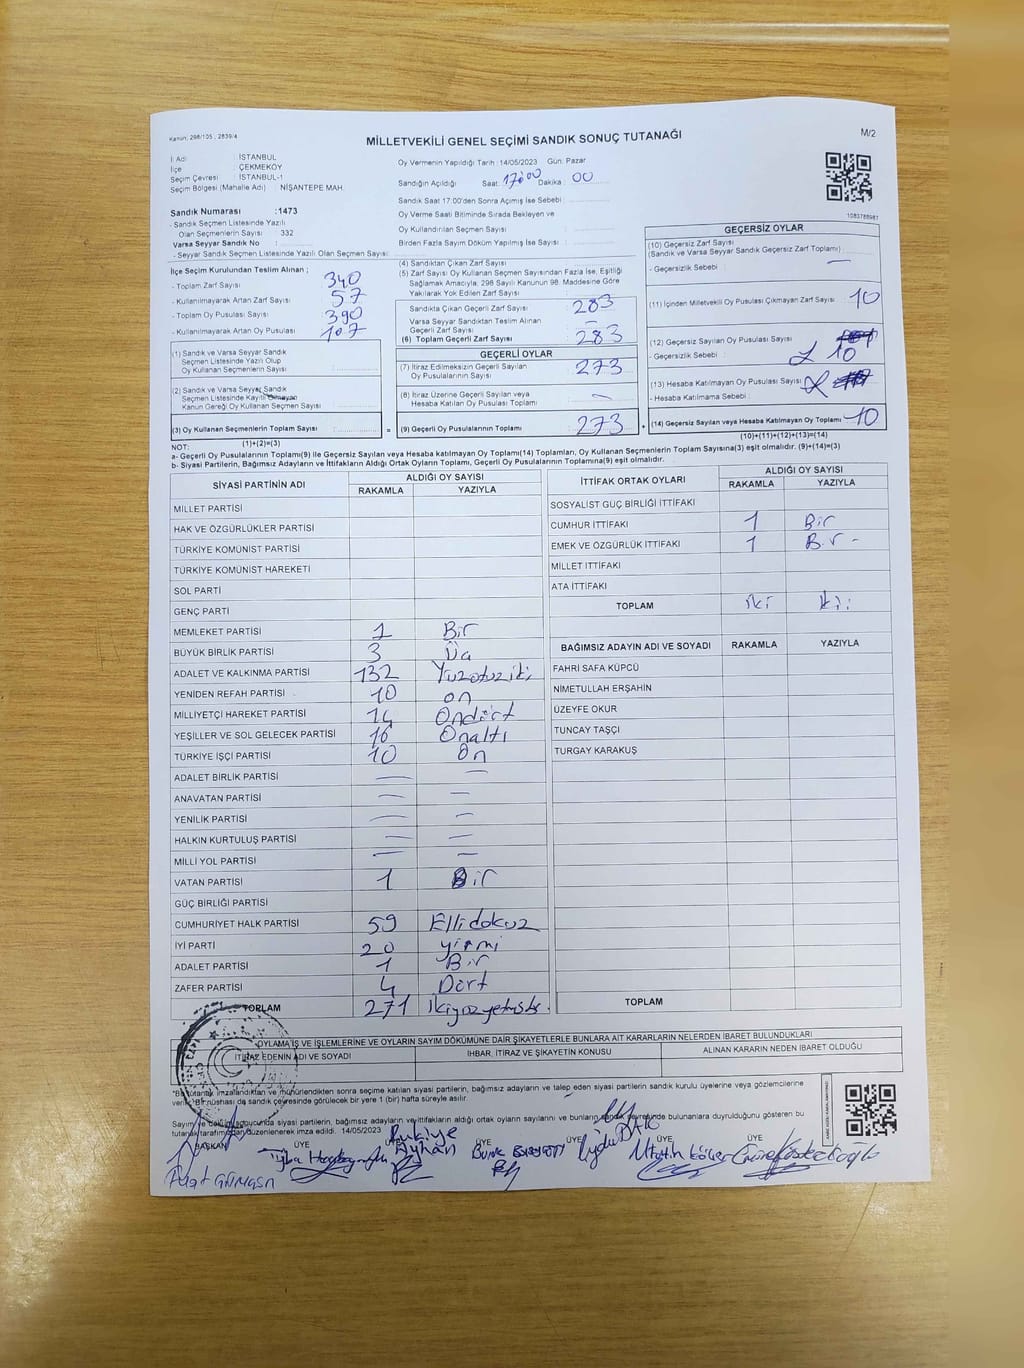 Kanun: 298/105 , 2839/4
MİLLETVEKİLİ GENEL SEÇİMİ SANDIK SONUÇ TUTANAĞI
M/2
İl Adı : İSTANBUL
İlçe : ÇEKMEKÖY
Seçim Çevresi : İSTANBUL-1
Seçim Bölgesi (Mahalle Adı) : NİŞANTEPE MAH.
Oy Vermenin Yapıldığı Tarih : 14/05/2023 Gün: Pazar
Sandığın Açıldığı Saat: 17:00 Dakika : 00
Sandık Saat 17.00'den Sonra Açımış İse Sebebi :
Oy Verme Saati Bitiminde Sırada Bekleyen ve
Oy Kullandırılan Seçmen Sayısı :
Birden Fazla Sayım Döküm Yapılmış İse Sayısı :
1083788981
Sandık Numarası : 1473
- Sandık Seçmen Listesinde Yazılı
Olan Seçmenlerin Sayısı : 332
Varsa Seyyar Sandık No :
- Seyyar Sandık Seçmen Listesinde Yazılı Olan Seçmen Sayısı:
İlçe Seçim Kurulundan Teslim Alınan ;
- Toplam Zarf Sayısı : 340
- Kullanılmayarak Artan Zarf Sayısı : 57
- Toplam Oy Pusulası Sayısı : 390
- Kullanılmayarak Artan Oy Pusulası : 107
(1) Sandık ve Varsa Seyyar Sandık
Seçmen Listesinde Yazılı Olup
Oy Kullanan Seçmenlerin Sayısı :
(2) Sandık ve Varsa Seyyar Sandık
Seçmen Listesinde Kayıtlı Olmayan
Kanun Gereği Oy Kullanan Seçmen Sayısı :
(3) Oy Kullanan Seçmenlerin Toplam Sayısı :
(1)+(2)=(3)
(4) Sandıktan Çıkan Zarf Sayısı :
(5) Zarf Sayısı Oy Kullanan Seçmen Sayısından Fazla İse, Eşitliği
Sağlamak Amacıyla, 298 Sayılı Kanunun 98. Maddesine Göre
Yakılarak Yok Edilen Zarf Sayısı :
Sandıkta Çıkan Geçerli Zarf Sayısı : 283
Varsa Seyyar Sandıktan Teslim Alınan
Geçerli Zarf Sayısı : –
(6) Toplam Geçerli Zarf Sayısı : 283
GEÇERLİ OYLAR
(7) İtiraz Edilmeksizin Geçerli Sayılan
Oy Pusulalarının Sayısı : 273
(8) İtiraz Üzerine Geçerli Sayılan veya
Hesaba Katılan Oy Pusulası Toplamı : –
= (9) Geçerli Oy Pusulalarının Toplamı : 273
GEÇERSİZ OYLAR
(10) Geçersiz Zarf Sayısı
(Sandık ve Varsa Seyyar Sandık Geçersiz Zarf Toplamı) : –
- Geçersizlik Sebebi :
(11) İçinden Milletvekili Oy Pusulası Çıkmayan Zarf Sayısı : 10
(12) Geçersiz Sayılan Oy Pusulası Sayısı :
- Geçersizlik Sebebi : 10
(13) Hesaba Katılmayan Oy Pusulası Sayısı :
- Hesaba Katılmama Sebebi :
+ (14) Geçersiz Sayılan veya Hesaba Katılmayan Oy Toplamı : 10
(10)+(11)+(12)+(13)=(14)
NOT:
a- Geçerli Oy Pusulalarının Toplamı(9) ile Geçersiz Sayılan veya Hesaba katılmayan Oy Toplamı(14) Toplamları, Oy Kullanan Seçmenlerin Toplam Sayısına(3) eşit olmalıdır. (9)+(14)=(3)
b- Siyasi Partilerin, Bağımsız Adayların ve İttifakların Aldığı Ortak Oyların Toplamı, Geçerli Oy Pusulalarının Toplamına(9) eşit olmalıdır.
SİYASİ PARTİNİN ADI ALDIĞI OY SAYISI
RAKAMLA YAZIYLA
MİLLET PARTİSİ
HAK VE ÖZGÜRLÜKLER PARTİSİ
TÜRKİYE KOMÜNİST PARTİSİ
TÜRKİYE KOMÜNİST HAREKETİ
SOL PARTİ
GENÇ PARTİ
MEMLEKET PARTİSİ 1 Bir
BÜYÜK BİRLİK PARTİSİ 3 Üç
ADALET VE KALKINMA PARTİSİ 132 Yüzotuziki
YENİDEN REFAH PARTİSİ 10 on
MİLLİYETÇİ HAREKET PARTİSİ 14 Ondört
YEŞİLLER VE SOL GELECEK PARTİSİ 16 Onaltı
TÜRKİYE İŞÇİ PARTİSİ 10 On
ADALET BİRLİK PARTİSİ – –
ANAVATAN PARTİSİ – –
YENİLİK PARTİSİ – –
HALKIN KURTULUŞ PARTİSİ – –
MİLLİ YOL PARTİSİ – –
VATAN PARTİSİ 1 Bir
GÜÇ BİRLİĞİ PARTİSİ
CUMHURİYET HALK PARTİSİ 59 Ellidokuz
İYİ PARTİ 20 yirmi
ADALET PARTİSİ 1 Bir
ZAFER PARTİSİ 4 Dört
TOPLAM 271
İTTİFAK ORTAK OYLARI ALDIĞI OY SAYISI
RAKAMLA YAZIYLA
SOSYALİST GÜÇ BİRLİĞİ İTTİFAKI
CUMHUR İTTİFAKI 1 Bir
EMEK VE ÖZGÜRLÜK İTTİFAKI 1 Bir -
MİLLET İTTİFAKI
ATA İTTİFAKI
TOPLAM iki iki
BAĞIMSIZ ADAYIN ADI VE SOYADI RAKAMLA YAZIYLA
FAHRİ SAFA KÜPCÜ
NİMETULLAH ERŞAHİN
ÜZEYFE OKUR
TUNCAY TAŞÇI
TURGAY KARAKUŞ
TOPLAM
OYLAMA İŞ VE İŞLEMLERİNE VE OYLARIN SAYIM DÖKÜMÜNE DAİR ŞİKAYETLERLE BUNLARA AİT KARARLARIN NELERDEN İBARET BULUNDUKLARI
İTİRAZ EDENİN ADI VE SOYADI İHBAR, İTİRAZ VE ŞİKAYETİN KONUSU ALINAN KARARIN NEDEN İBARET OLDUĞU
*Bu tutanak imzalandıktan ve mühürlendikten sonra seçime katılan siyasi partilerin, bağımsız adayların ve talep eden siyasi partilerin sandık kurulu üyelerine veya gözlemcilerine
verilir. Bir nüshası da sandık çevresinde görülecek bir yere 1 (bir) hafta süreyle asılır.
Sayım ve döküm sonucunda siyasi partilerin, bağımsız adayların ve ittifakların aldığı ortak oyların sayılarını ve bunların sandık çevresinde bulunanlara duyurulduğunu gösteren bu
tutanak tarafımızdan düzenlenerek imza edildi. 14/05/2023
BAŞKAN ÜYE ÜYE ÜYE ÜYE ÜYE ÜYE
Rukiye
Ayhan